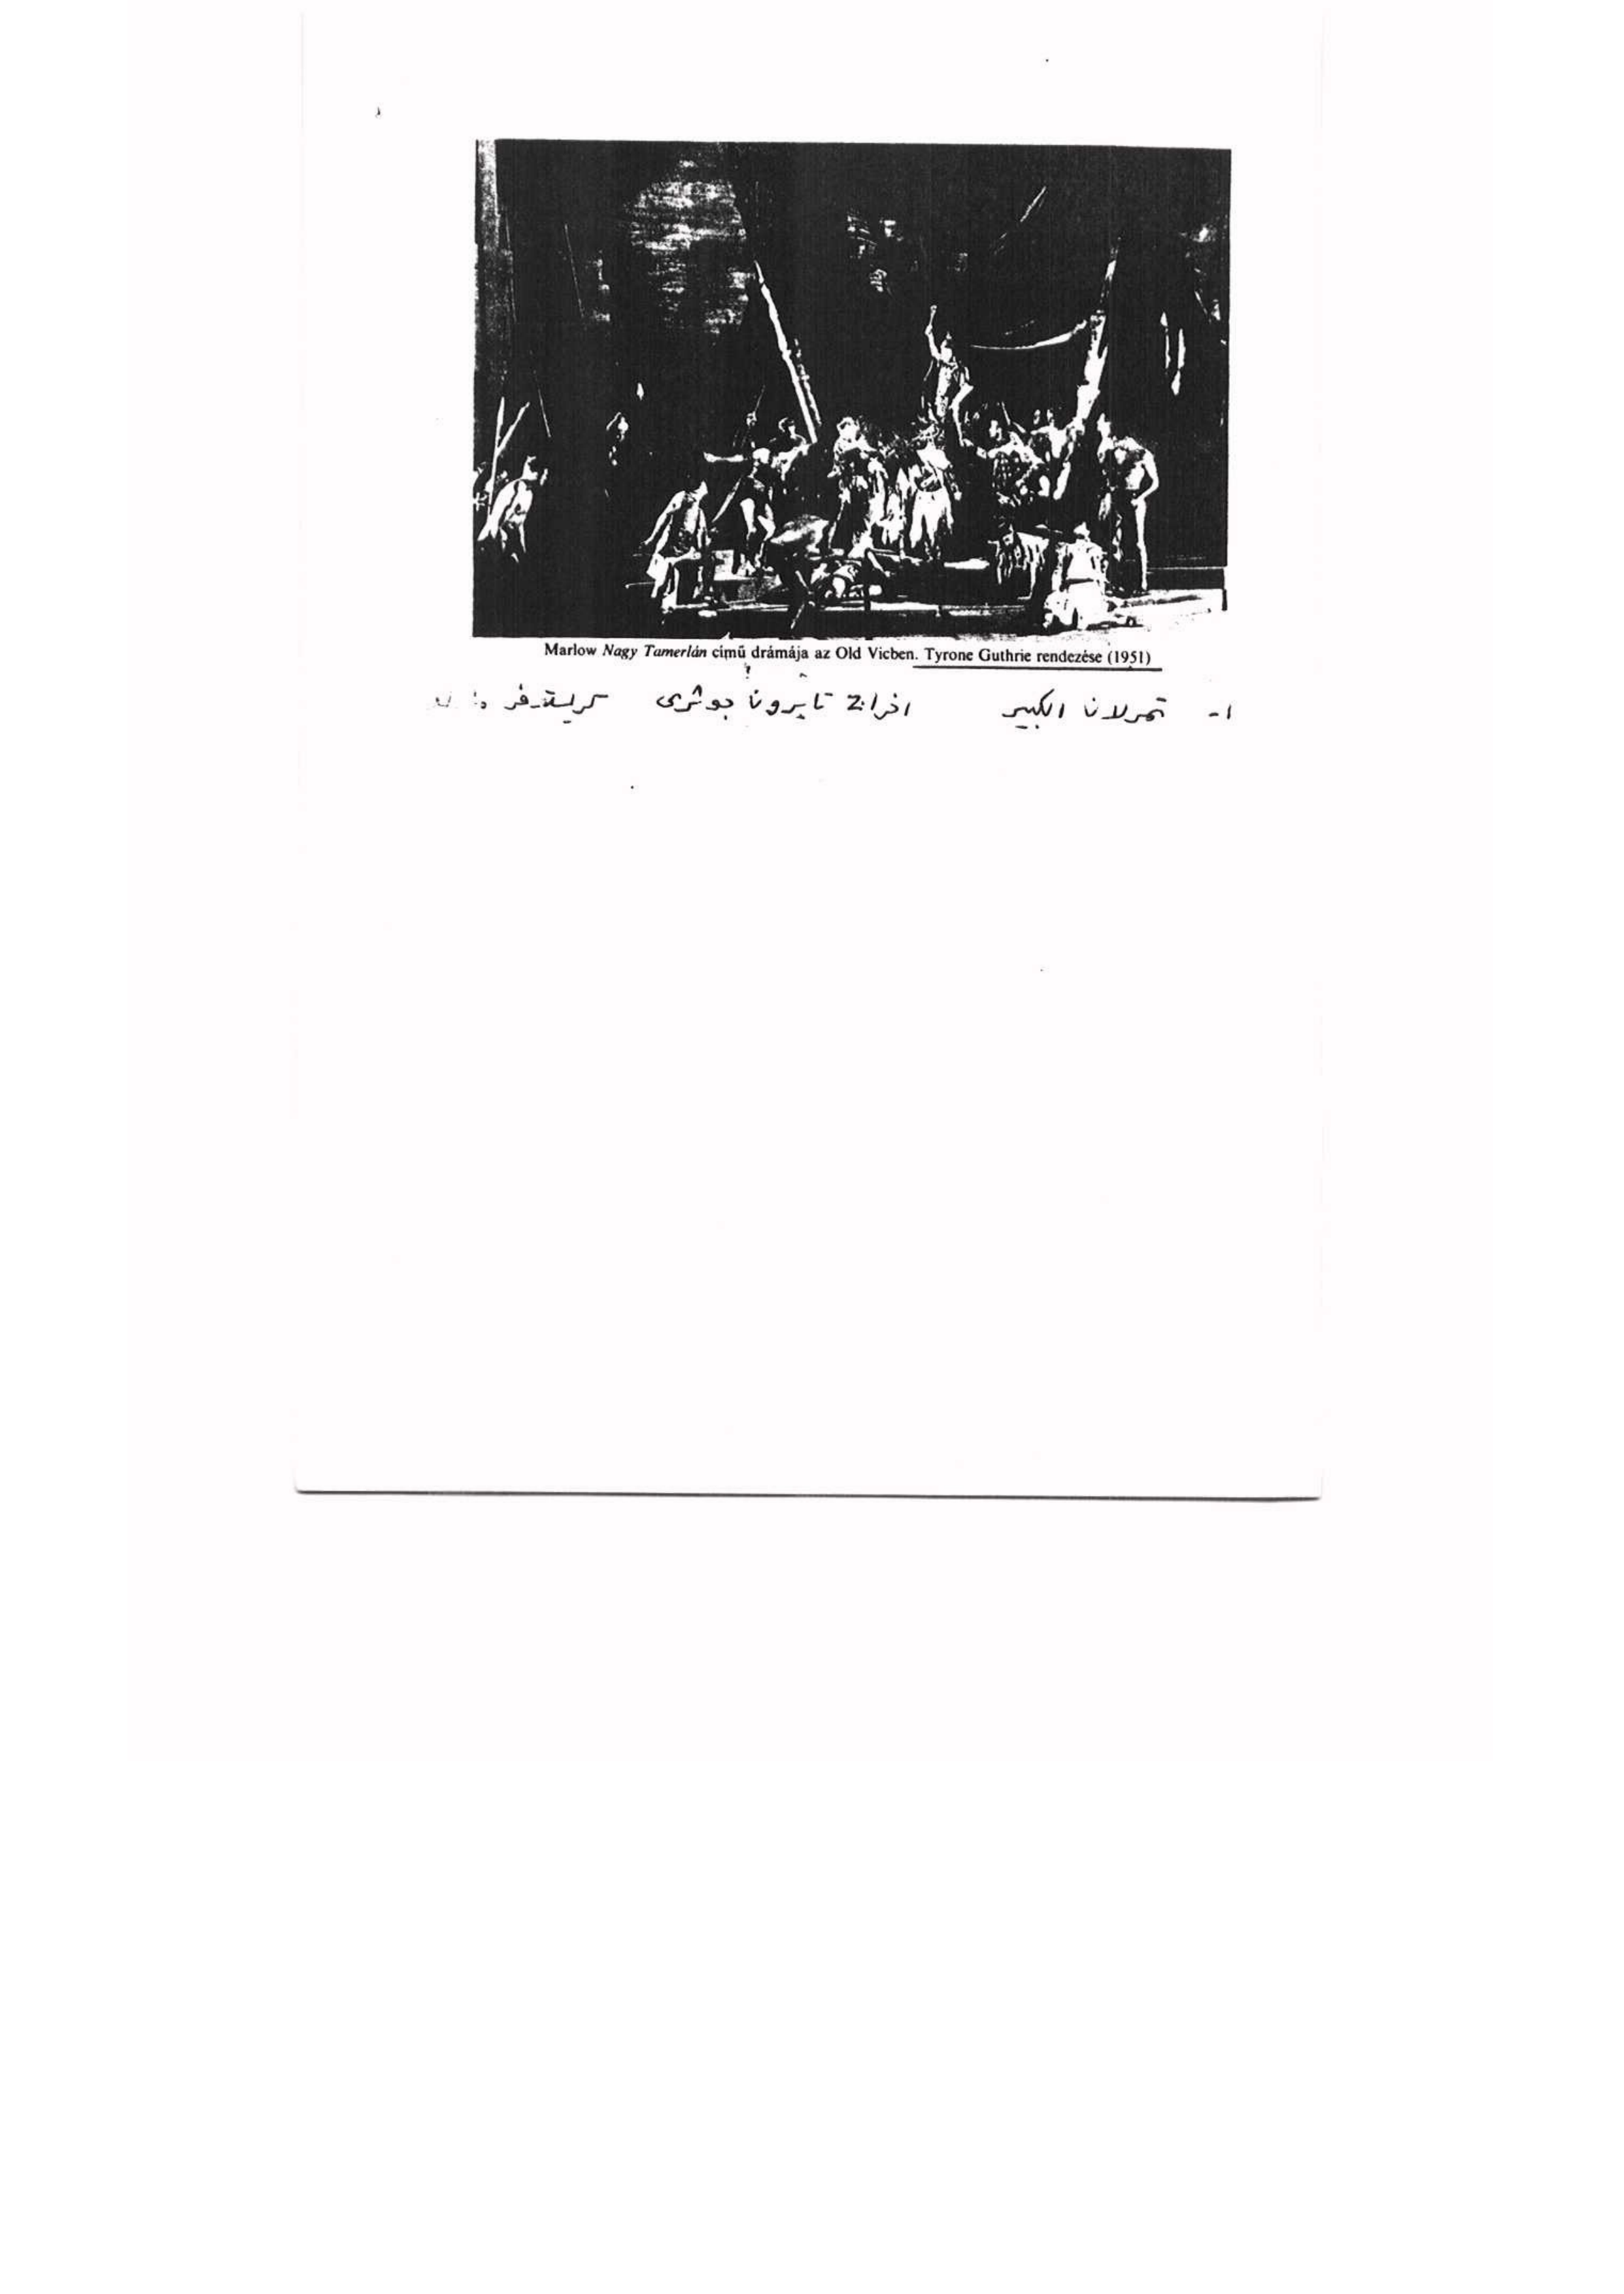 Marlow Nagy Tamerlán című drámája az Old Vicben. Tyrone Guthrie rendezése (1951)
١- تمرلان الكبير اخراج تايرون جوثرى كريستوفر